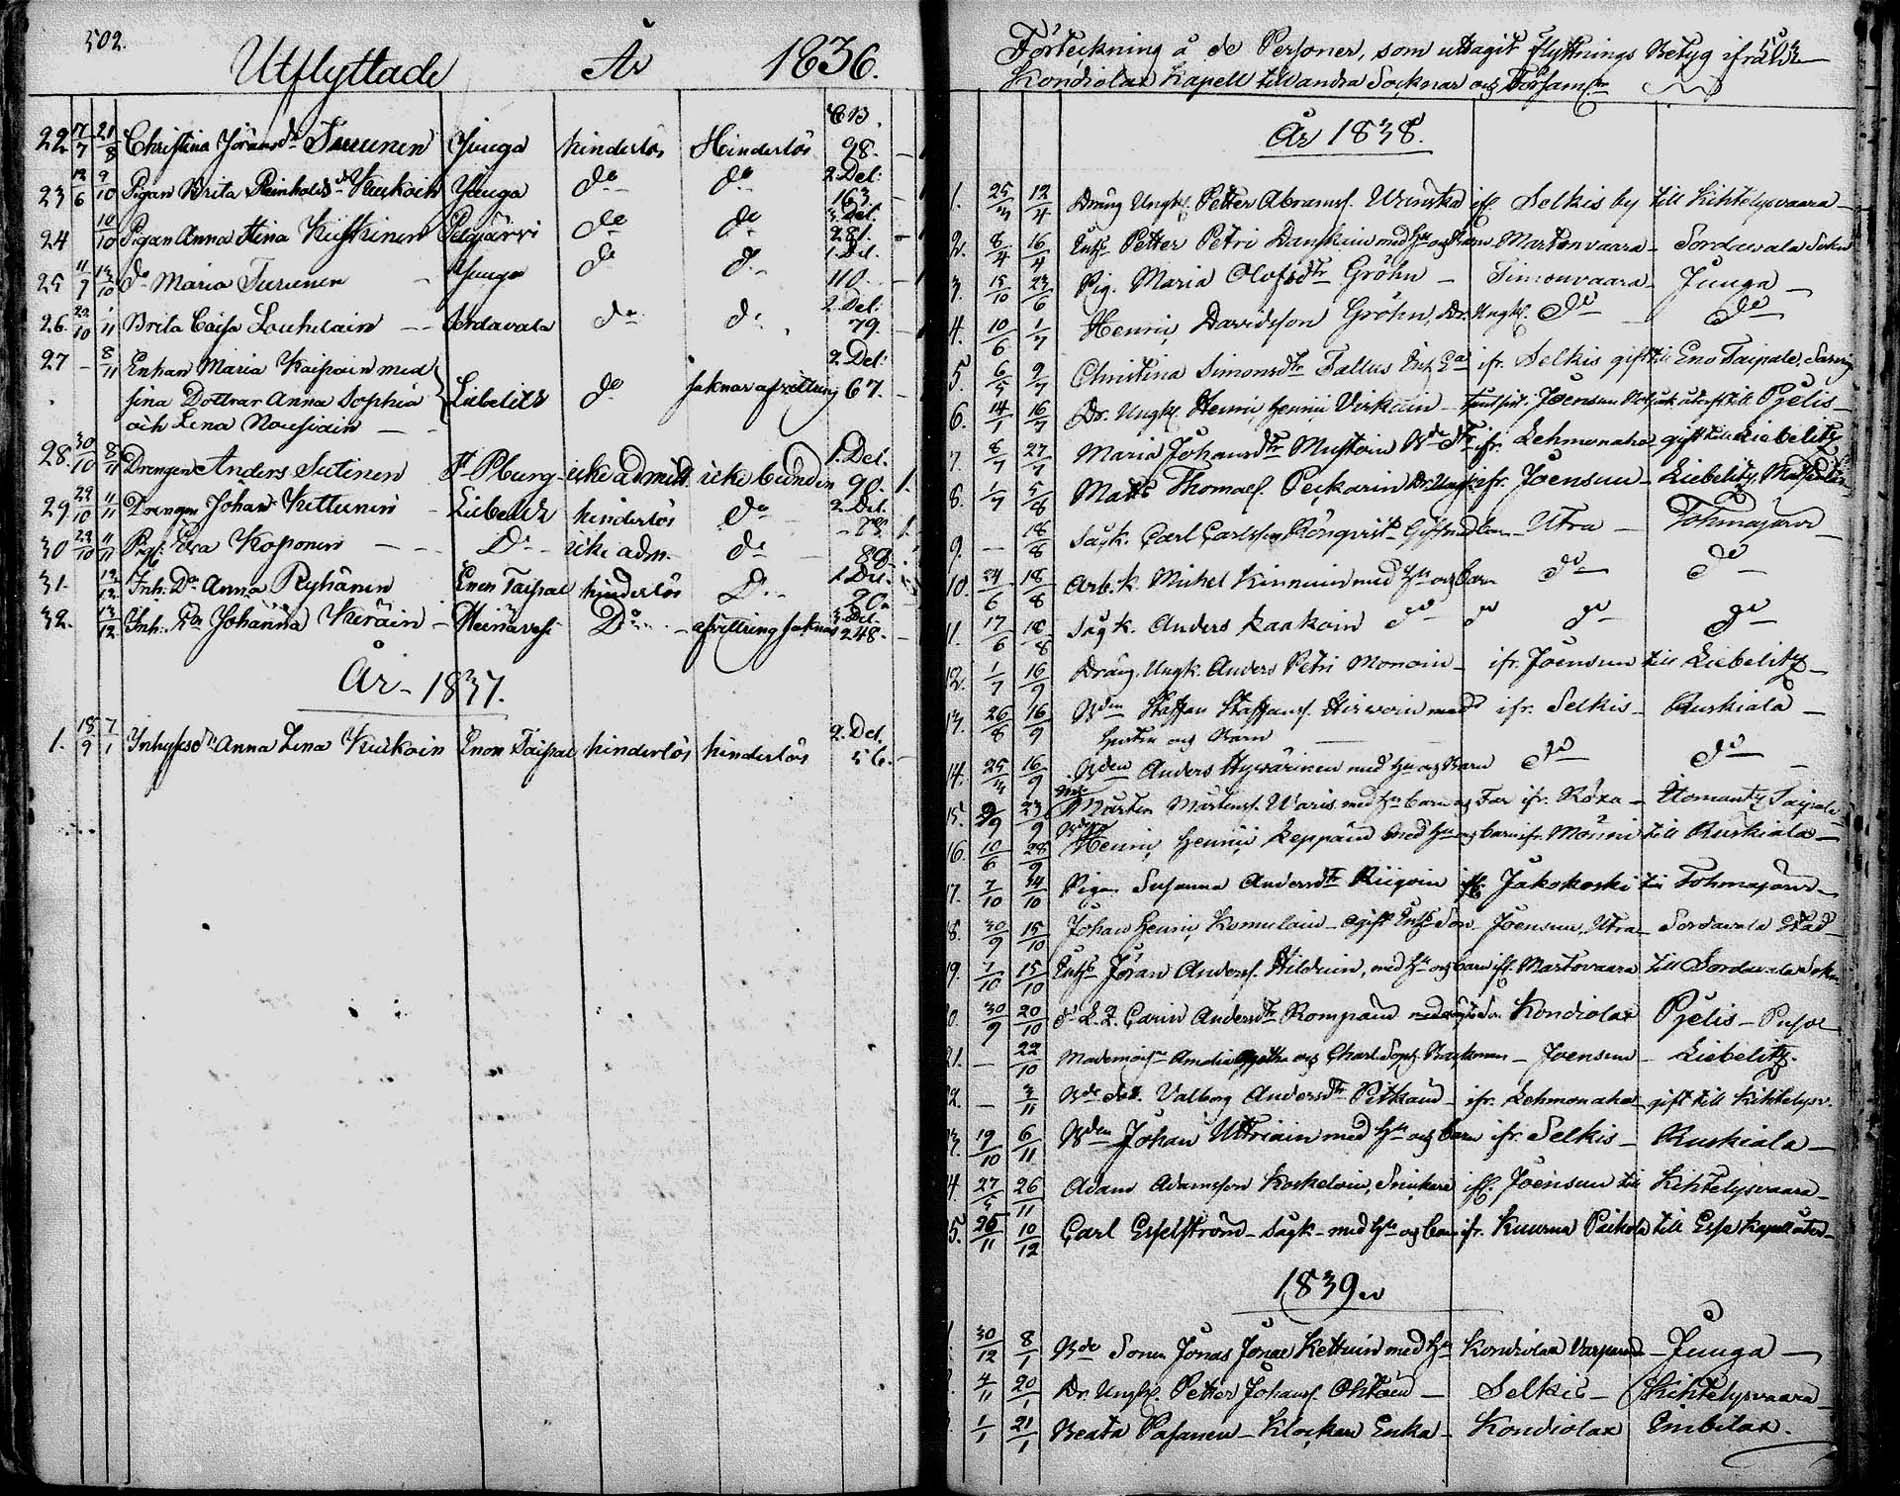 502.
Utflyttade År 1836.
CB.
22. 17/7 21/8 Christina Jöransdr Turunen Juuga hinderlös Hinderlös 98.
2 Del:
23 12/6 9/10 Pigan Brita Reinholdsdr Kuikoin Juuga do do 163
3 Del.
24 10/10 Pigan Anna Stina Kiiskinen Pelgjärvi do do 281.
1 Del.
25 11/7 13/10 do Maria Turunen Juuga do do 110.
2 Del:
26. 22/10 1/11 Brita Caisa Louhelain Sordavala do do 79.
2 Del:
27 8/11 Enkan Maria Kaipain med
sina Dottrar Anna Sophia Liebelits do saknar afvittring 67.
och Lena Nousiain
1. Del.
28. 30/10 8/11 Drengen Anders Sutinen St Pburg icke admitt icke bunden 90.
2 Del.
29 22/10 11/11 Drengen Johan Kettunen Liebelits hinderlös do
30 22/10 11/11 Pig: Eva Koponen Do icke adm. do 80.
1 Del.
31. 12/12 Inh. Dr Anna Ryhänen Enon Taipal hinderlös Do 20.
3 Del.
32. 13/12 Inh. Johanna Keräin Heinävesi Do afvittring saknas 248.
År 1837.
2 Del.
1. 18/9 7/1 Inhysesdr Anna Lena Kuikain Enon Taipal hinderlös hinderlös 56.
Förteckning å de Personer, som uttagit flyttnings Betyg ifrån 503
Kondiolax Kapell till andra Socknar och Församl.
År 1838.
1. 25/3 12/4 Dräng Ungk. Petter Abramss. ifr. Selkis by till Kihtelysvaara
2. 8/4 16/4 Petter Petri med Hu och Barn Martonvaara Sordavala Sokn
3. 15/10 23/6 Pig. Maria Olofsdtr Gröhn Timonvaara Juuga
4. 10/6 1/7 Henric Davidsson Gröhn, Dr. Ungk. do do
5. 6/5 9/7 Christina Simonsdtr Fallus ifr. Selkis gift till Eno Taipale
6. 14/1 16/7 Dr. Ungk. Henric Henrici Joensuu till Pjelis
7. 8/7 27/7 Maria Johansdtr Mustoin ifr. Lehmonaho gift till Liebelitz
8. 1/7 5/8 Matts Thomass. Peckarin Dr. Ungk. ifr. Joensuu Liebelitz
9. 18/8 Sågk. Carl Carlsson Rönqvist Utra Tohmajärvi
10. 24/6 18/8 Arb.k. Michel Kinnuin med Hu och barn do do
11. 17/6 18/8 Sågk. Anders Kaakoin do do do do
12. 1/7 16/9 Dräng Ungk. Anders Petri Monoin ifr. Joensuu till Liebelitz
13. 26/8 16/9 Bden Staffan Staffanss. Hirvoin med ifr. Selkis Ruskiala
Hustru och Barn
14. 25/3 16/9 Bden Anders Hyvärinen med Hu och Barn do do
15. 2/9 23/9 Mårten Mårtenss. Waris med Hu barn och Far ifr. Röxa Ilomantz Taipale
16. 10/6 28/9 Bden Henric Henrici Leppäin med Hu och barn ifr. Mönni till Ruskiala
17. 7/10 14/10 Pigan Susanna Andersdtr Riigoin ifr. Jakokoski till Tohmajärvi
18. 30/9 15/10 Johan Henric Komulain Joensuu, Utra Sordavala Stad
19. 7/10 15/10 Inhs Jöran Anderss. Hilduin, med Hu och barn ifr. Martovaara till Sordavala Sokn
20. 30/9 20/10 Carin Andersdtr Rompain Kondiolax Pjelis
21. 22/10 Mademois. Amalia Agatha och Charl. Soph. Backman Joensuu Liebelitz.
22. 3/11 Bde dot. Valborg Andersdtr Pitkäin ifr. Lehmonaho gift till Kihtelysv.
23. 19/10 6/11 Bden Johan Uttriain med Hu och barn ifr. Selkis Ruskiala
24. 27/5 26/11 Adam Adamsson Koskeloin, Snickare ifr. Joensuu till Kihtelysvaara
25. 26/11 10/12 Carl Esselström Sågk. med Hu och barn ifr. Kuurna Paihola till Esse Kapell
1839.
1. 30/12 8/1 Bde Sonen Jonas Jonae Kettuin med Hu Kondiolax Juuga
2. 4/11 20/1 Dr. Ungk. Petter Johanss. Ohtoin Selkis Kihtelysvaara
3. 1/1 21/1 Beata Pasanen Klockare Enka Kondiolax